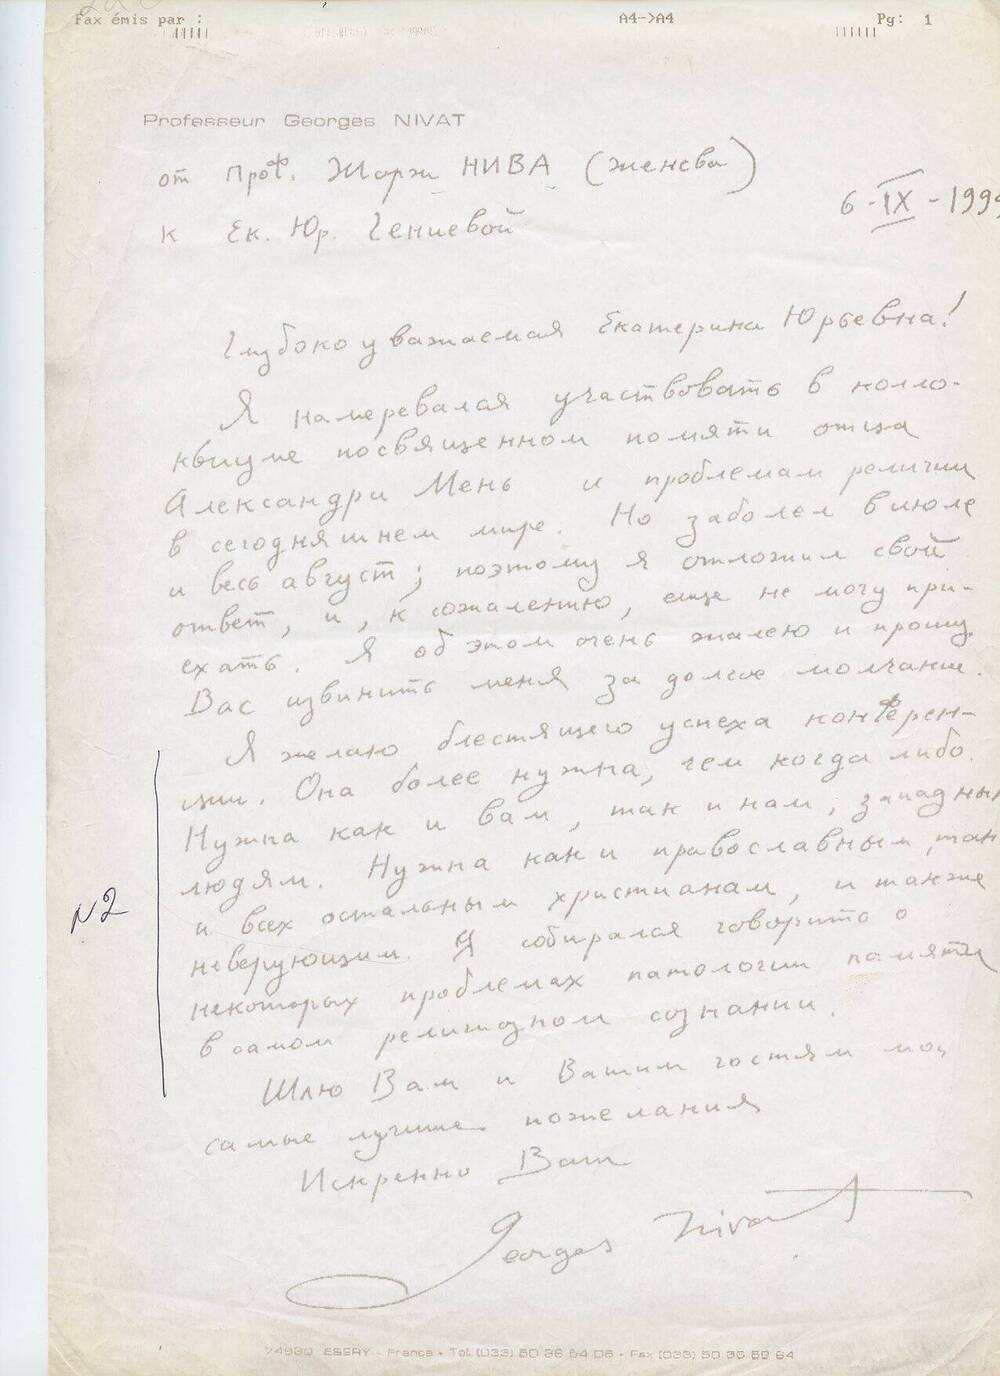 Fax émis par : A4->A4 Pg: 1
Professeur Georges NIVAT
от Проф. Жорж НИВА (Женева)
6-IX-199
к Ек. Юр. Гениевой
Глубокоуважаемая Екатерина Юрьевна!
Я намеревался участвовать в колло-
квиуме посвященном памяти отца
Александра Мень и проблемам религии
в сегодняшнем мире. Но заболел в июле
и весь август; поэтому я отложил свой
ответ, и, к сожалению, еще не могу при-
ехать. Я об этом очень жалею и прошу
Вас извинить меня за долгое молчание.
Я желаю блестящего успеха конферен-
ции. Она более нужна, чем когда либо.
Нужна как и вам, так и нам, западным
людям. Нужна как и православным, так
и всех остальным христианам, и также
неверующим. Я собирался говорить о
N2
некоторых проблемах патологии памяти
в самом религиозном сознании.
Шлю Вам и Вашим гостям мои
самые лучшие пожелания
Искренно Ваш
Georges Nivat
74930 ESERY - France - Tél. (033) 50 36 64 06 - Fax (033) 50 36 59 64